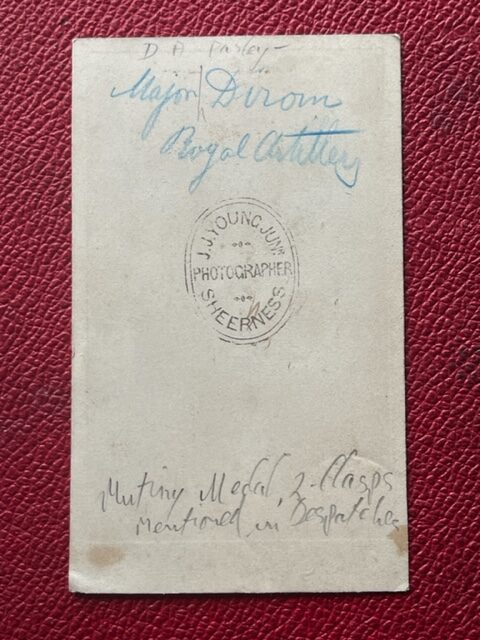 D A Pasley -
Major Dirom
Royal Artillery
J.J. YOUNG JUNR.
PHOTOGRAPHER
SHEERNESS
Mutiny Medal, 2 Clasps
Mentioned in Despatches